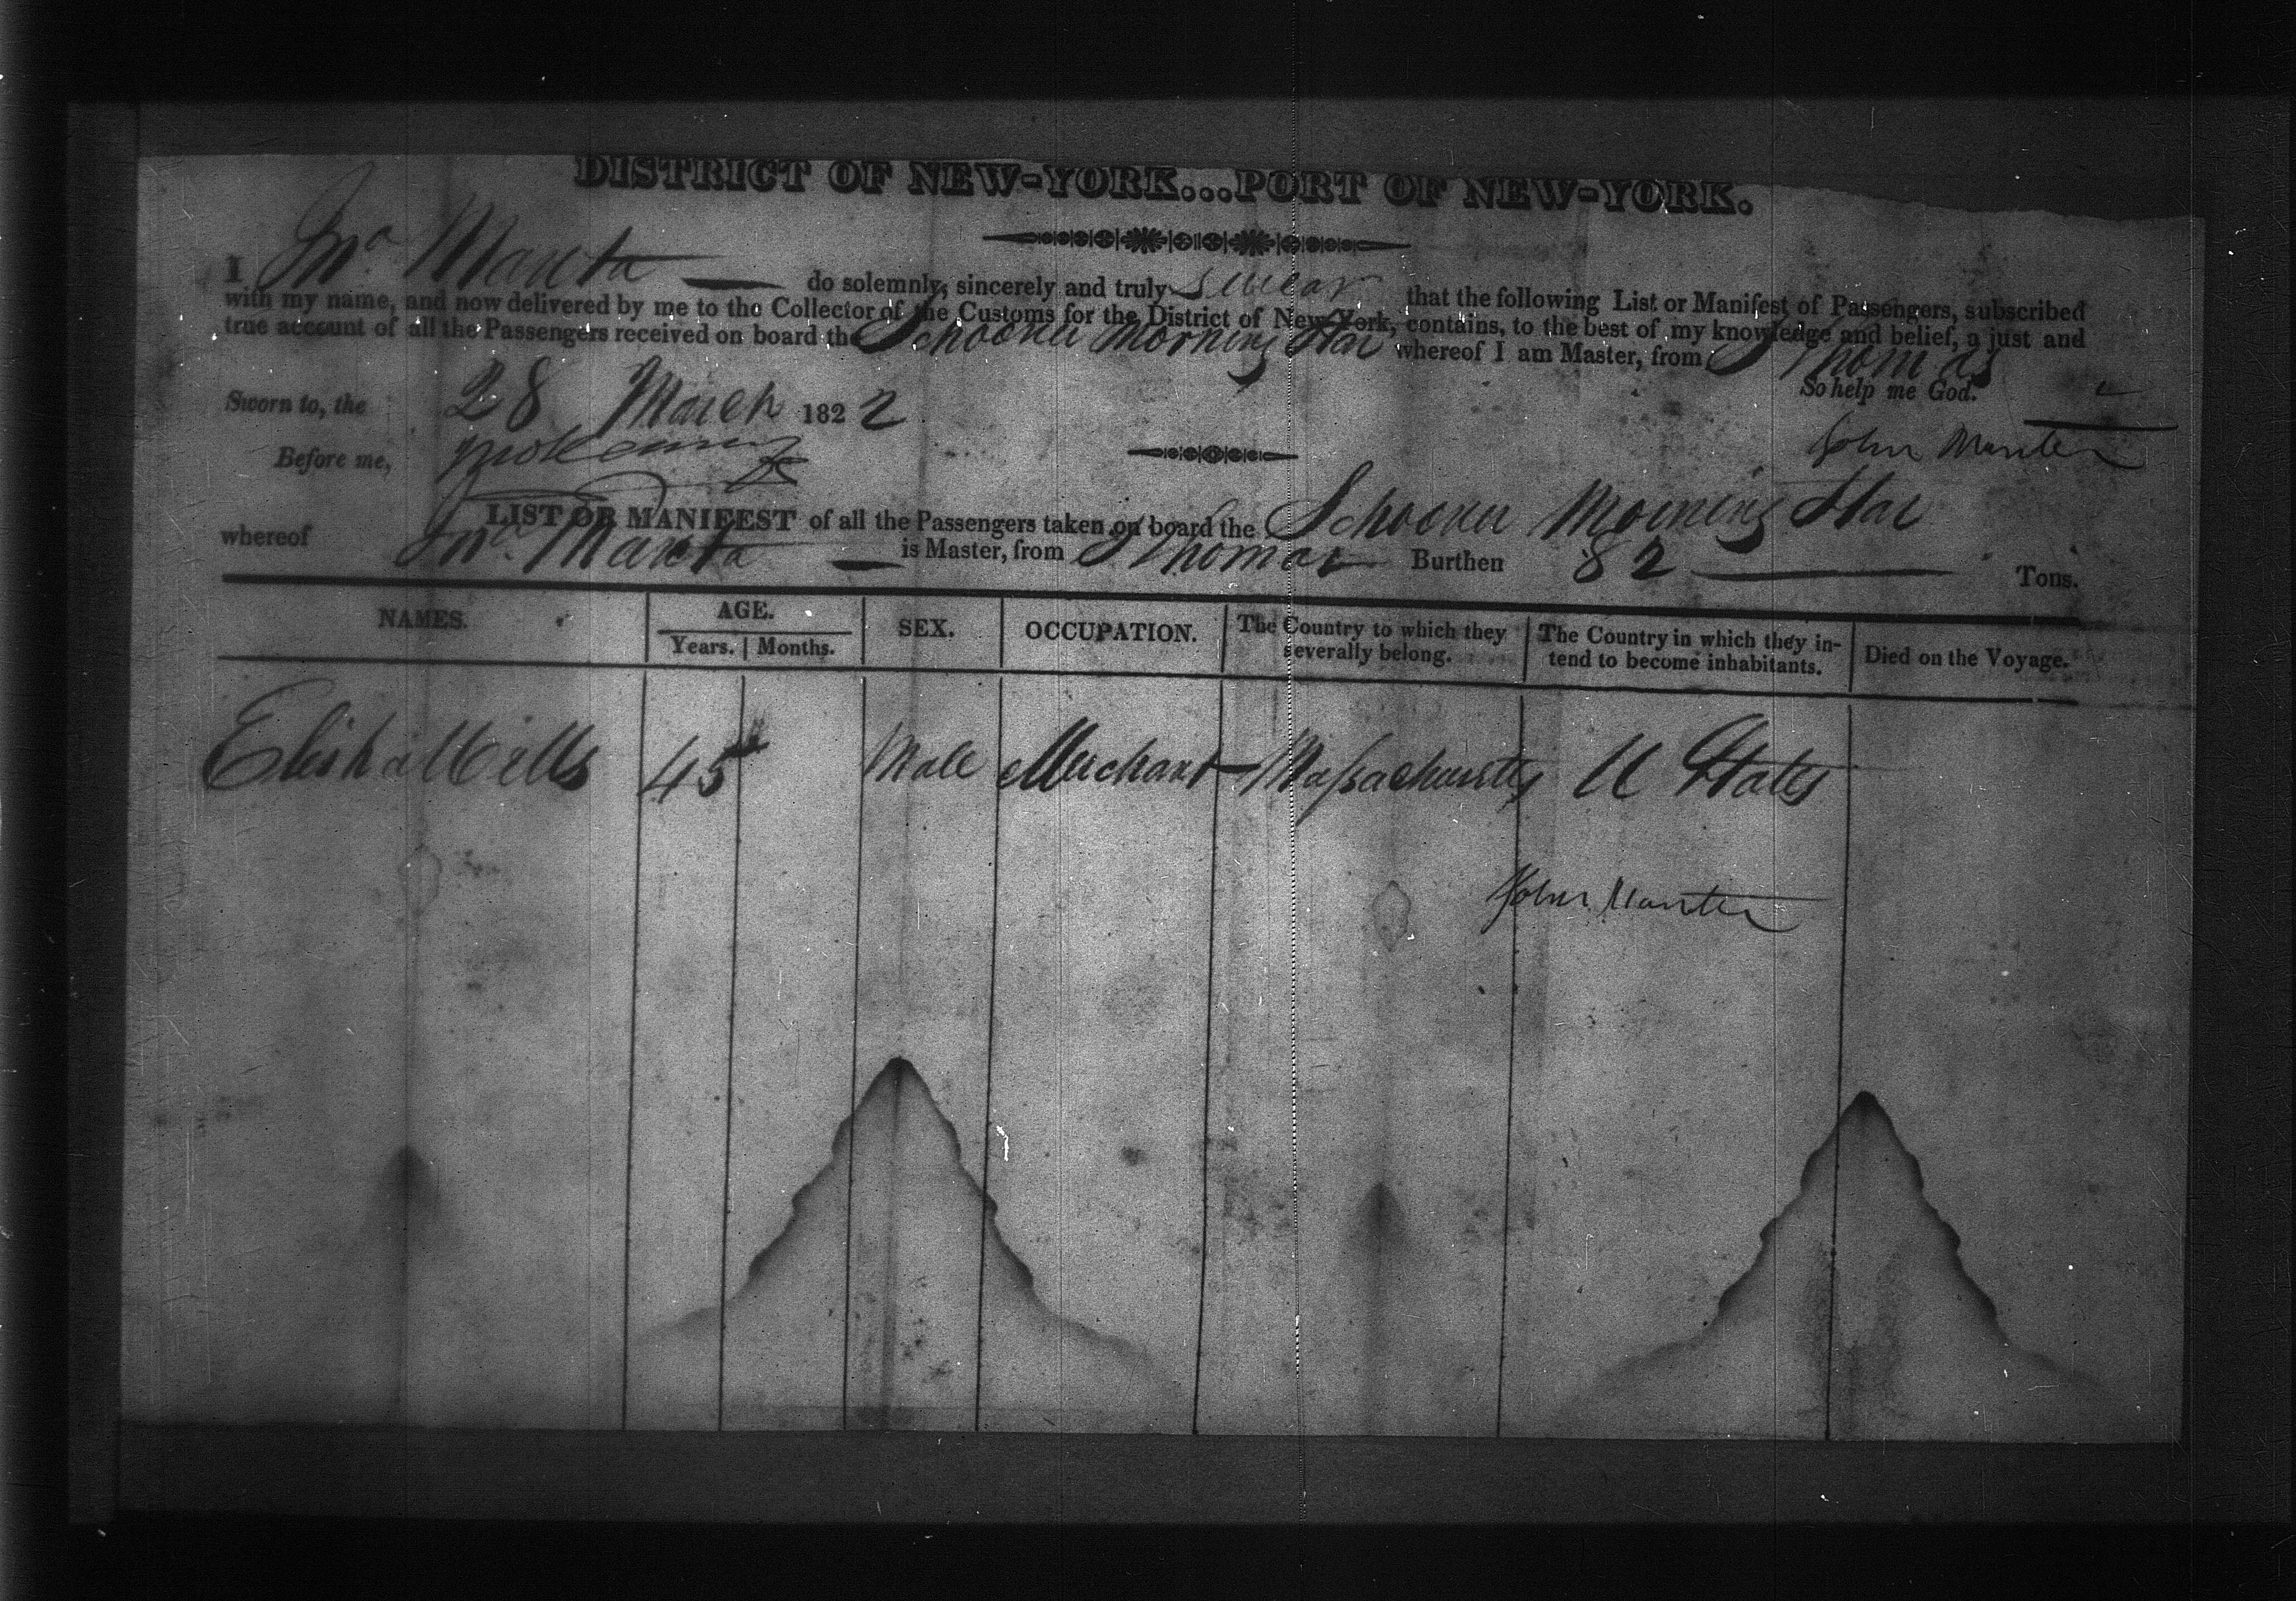 DISTRICT OF NEW-YORK...PORT OF NEW-YORK.
I Jno. Manta do solemnly, sincerely and truly swear that the following List or Manifest of Passengers, subscribed
with my name, and now delivered by me to the Collector of the Customs for the District of New-York, contains, to the best of my knowledge and belief, a just and
true account of all the Passengers received on board the Schooner Morning Star whereof I am Master, from St Thomas
So help me God.
Sworn to, the 28 March 1822
John Manter
Before me,
LIST OR MANIFEST of all the Passengers taken on board the Schooner Morning Star
whereof Jno. Manta is Master, from St Thomas Burthen 82 Tons.
NAMES. AGE. SEX. OCCUPATION. The Country to which they severally belong. The Country in which they intend to become inhabitants. Died on the Voyage.
Years. Months.
Elisha Mills 45 Male Merchant Massachusetts U States
John Manter